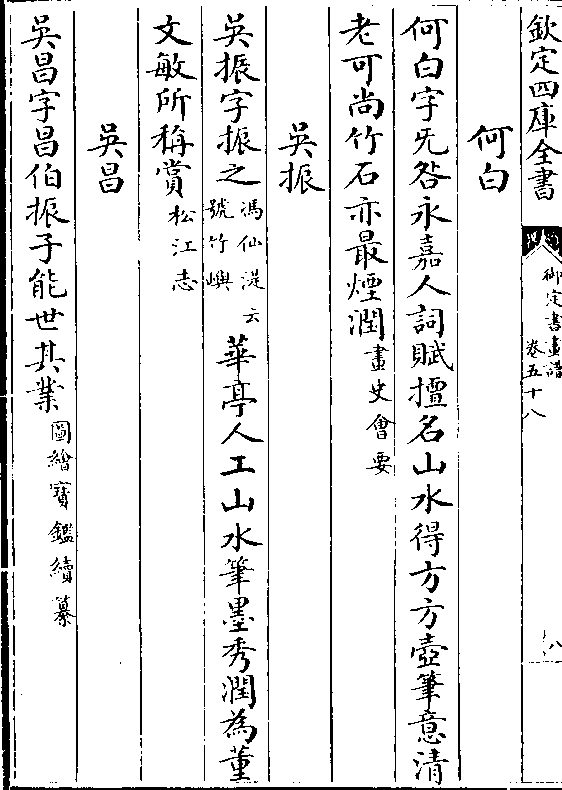 欽定四庫全書
御定書畫譜
卷五十八
八
何白
何白字旡咎永嘉人詞賦擅名山水得方方壺筆意清
老可尚竹石亦最煙潤畫史會要
吳振
吳振字振之馮仙湜云號竹嶼華亭人工山水筆墨秀潤為董
文敏所稱賞松江志
吳昌
吳昌字昌伯振子能世其業圖繪寶鑑續纂